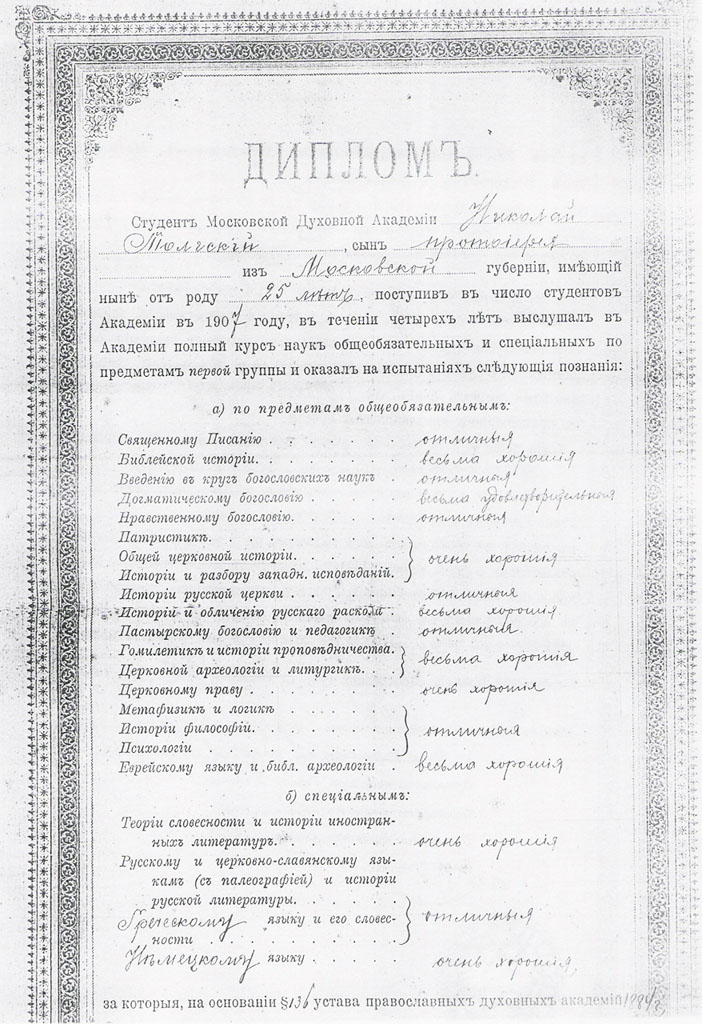 ДИПЛОМЪ.
Студентъ Московской Духовной Академіи Николай
Толгскій, сынъ протоіерея
изъ Московской губерніи, имѣющій
нынѣ отъ роду 25 лѣтъ, поступивъ въ число студентовъ
Академіи въ 1907 году, въ теченіи четырехъ лѣтъ выслушалъ въ
Академіи полный курсъ наукъ общеобязательныхъ и спеціальныхъ по
предметамъ первой группы и оказалъ на испытаніяхъ слѣдующія познанія:
а) по предметамъ общеобязательнымъ:
Священному Писанію . . . . . . . отличныя
Библейской исторіи. . . . . . . весьма хорошія
Введенію въ кругъ богословскихъ наукъ . отличныя
Догматическому богословію . . . . . весьма удовлетворительныя
Нравственному богословію. . . . . . отличныя
Патристикѣ. . . . . . . . . .
Общей церковной исторіи. . . . . . очень хорошія
Исторіи и разбору западн. исповѣданій.
Исторіи русской церкви . . . . . . отличныя
Исторіи и обличенію русскаго раскола . весьма хорошія
Пастырскому богословію и педагогикѣ . отличныя.
Гомилетикѣ и исторіи проповѣдничества.
Церковной археологіи и литургикѣ. . . весьма хорошія
Церковному праву . . . . . . . . очень хорошія
Метафизикѣ и логикѣ . . . . . . .
Исторіи философіи. . . . . . . . отличныя
Психологіи . . . . . . . . . .
Еврейскому языку и библ. археологіи . весьма хорошія
б) спеціальнымъ:
Теоріи словесности и исторіи иностран-
ныхъ литературъ. . . . . . . очень хорошія
Русскому и церковно-славянскому язы-
камъ (съ палеографіей) и исторіи
русской литературы. . . . . .
Греческому языку и его словес- отличныя
ности . . . . . . . . . .
Нѣмецкому языку . . . . . . очень хорошія,
за которыя, на основаніи §136 устава православныхъ духовныхъ академій